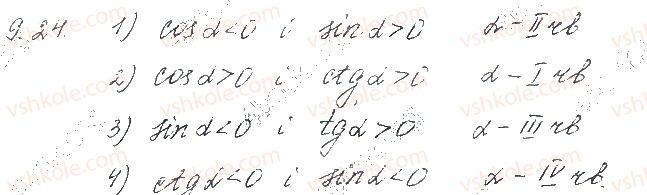 9.24. 1) cosα<0 і sinα>0 α - II чв
2) cosα>0 і ctgα>0 α - I чв
3) sinα<0 і tgα>0 α - III чв
4) ctgα<0 і sinα<0 α - IV чв